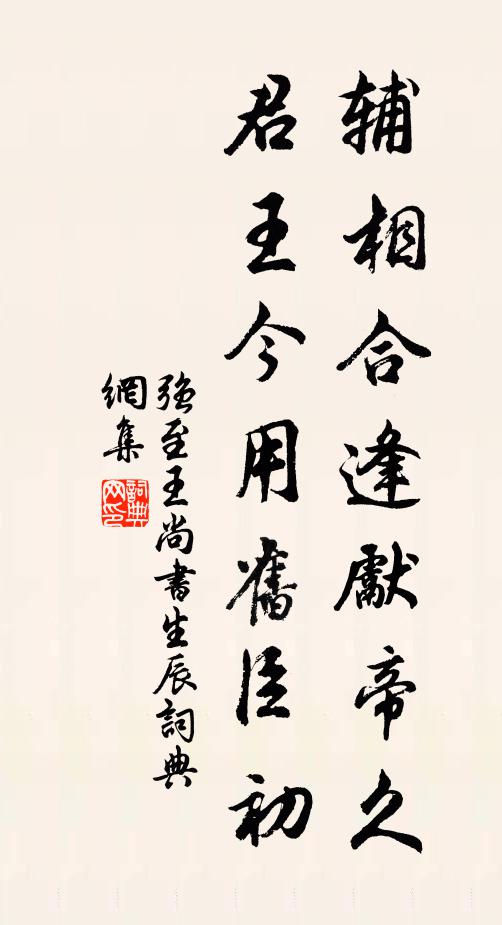 辅相合逢獻帝久
君王今用舊臣初
强至王尚書生辰詞典
網集
詞典
网印